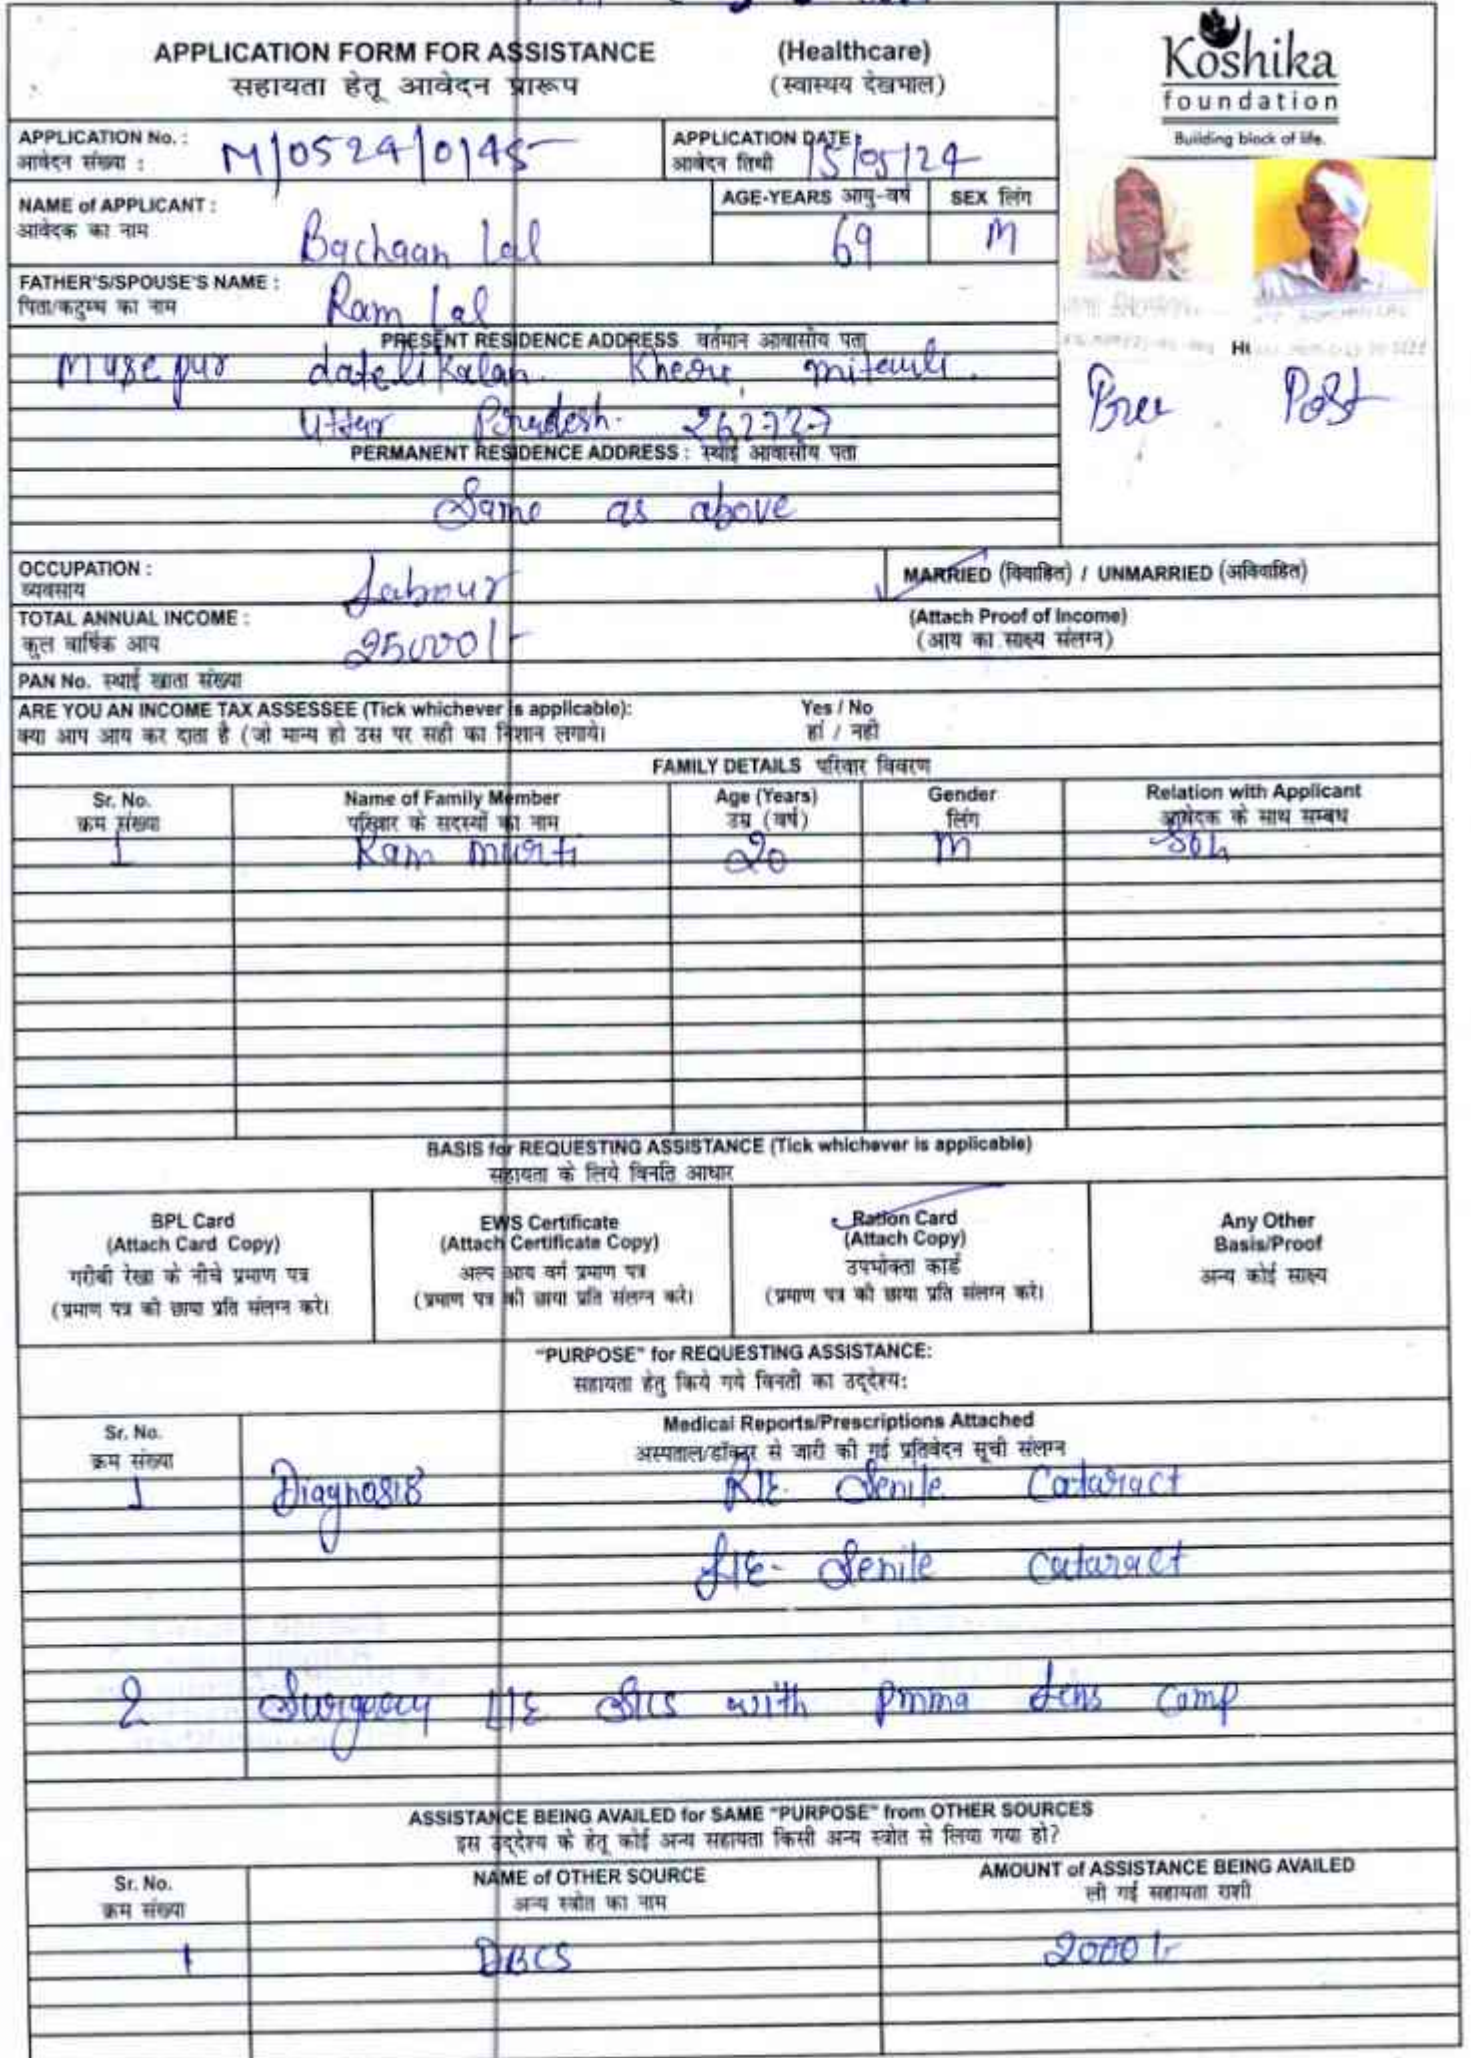 APPLICATION FORM FOR ASSISTANCE (Healthcare)
सहायता हेतू आवेदन प्रारूप (स्वास्थय देखभाल)
Koshika
foundation
Building block of life.
APPLICATION No. : M/0524/0145
आवेदन संख्या :
APPLICATION DATE : 15/05/24
आवेदन तिथी
NAME of APPLICANT : Bachaan Lal
आवेदक का नाम
AGE-YEARS आयु-वर्ष 69
SEX लिंग M
FATHER'S/SPOUSE'S NAME : Ram Lal
पिता/कटुम्ब का नाम
PRESENT RESIDENCE ADDRESS वर्तमान आवासीय पता
Musepur datelikalan. Kheri, mitauli.
Uttar Pradesh. 262727
Pree Post
PERMANENT RESIDENCE ADDRESS : स्थाई आवासीय पता
Same as above
OCCUPATION : Labour
व्यवसाय
MARRIED (विवाहित) / UNMARRIED (अविवाहित)
TOTAL ANNUAL INCOME : 25000/-
कुल वार्षिक आय
(Attach Proof of Income)
(आय का साक्ष्य संलग्न)
PAN No. स्थाई खाता संख्या
ARE YOU AN INCOME TAX ASSESSEE (Tick whichever is applicable): Yes / No
क्या आप आय कर दाता है (जो मान्य हो उस पर सही का निशान लगाये। हां / नही
FAMILY DETAILS परिवार विवरण
Sr. No. Name of Family Member Age (Years) Gender Relation with Applicant
क्रम संख्या परिवार के सदस्यों का नाम उम्र (वर्ष) लिंग आवेदक के साथ सम्बध
1 Ram murti 20 M Son
BASIS for REQUESTING ASSISTANCE (Tick whichever is applicable)
सहायता के लिये विनति आधार
BPL Card
(Attach Card Copy)
गरीबी रेखा के नीचे प्रमाण पत्र
(प्रमाण पत्र की छाया प्रति संलग्न करे।
EWS Certificate
(Attach Certificate Copy)
अल्प आय वर्ग प्रमाण पत्र
(प्रमाण पत्र की छाया प्रति संलग्न करे।
Ration Card
(Attach Copy)
उपभोक्ता कार्ड
(प्रमाण पत्र की छाया प्रति संलग्न करे।
Any Other
Basis/Proof
अन्य कोई साक्ष्य
"PURPOSE" for REQUESTING ASSISTANCE:
सहायता हेतु किये गये विनती का उद्देश्य:
Sr. No. Medical Reports/Prescriptions Attached
क्रम संख्या अस्पताल/डॉक्टर से जारी की गई प्रतिवेदन सूची संलग्न
1 Diagnosis R/E- Senile Cataract
L/E- Senile Cataract
2 Surgery L/E SICS with Pmma Lens Camp
ASSISTANCE BEING AVAILED for SAME "PURPOSE" from OTHER SOURCES
इस उद्देश्य के हेतू कोई अन्य सहायता किसी अन्य स्त्रोत से लिया गया हो?
Sr. No. NAME of OTHER SOURCE AMOUNT of ASSISTANCE BEING AVAILED
क्रम संख्या अन्य स्त्रोत का नाम ली गई सहायता राशी
1 DBCS 2000/-